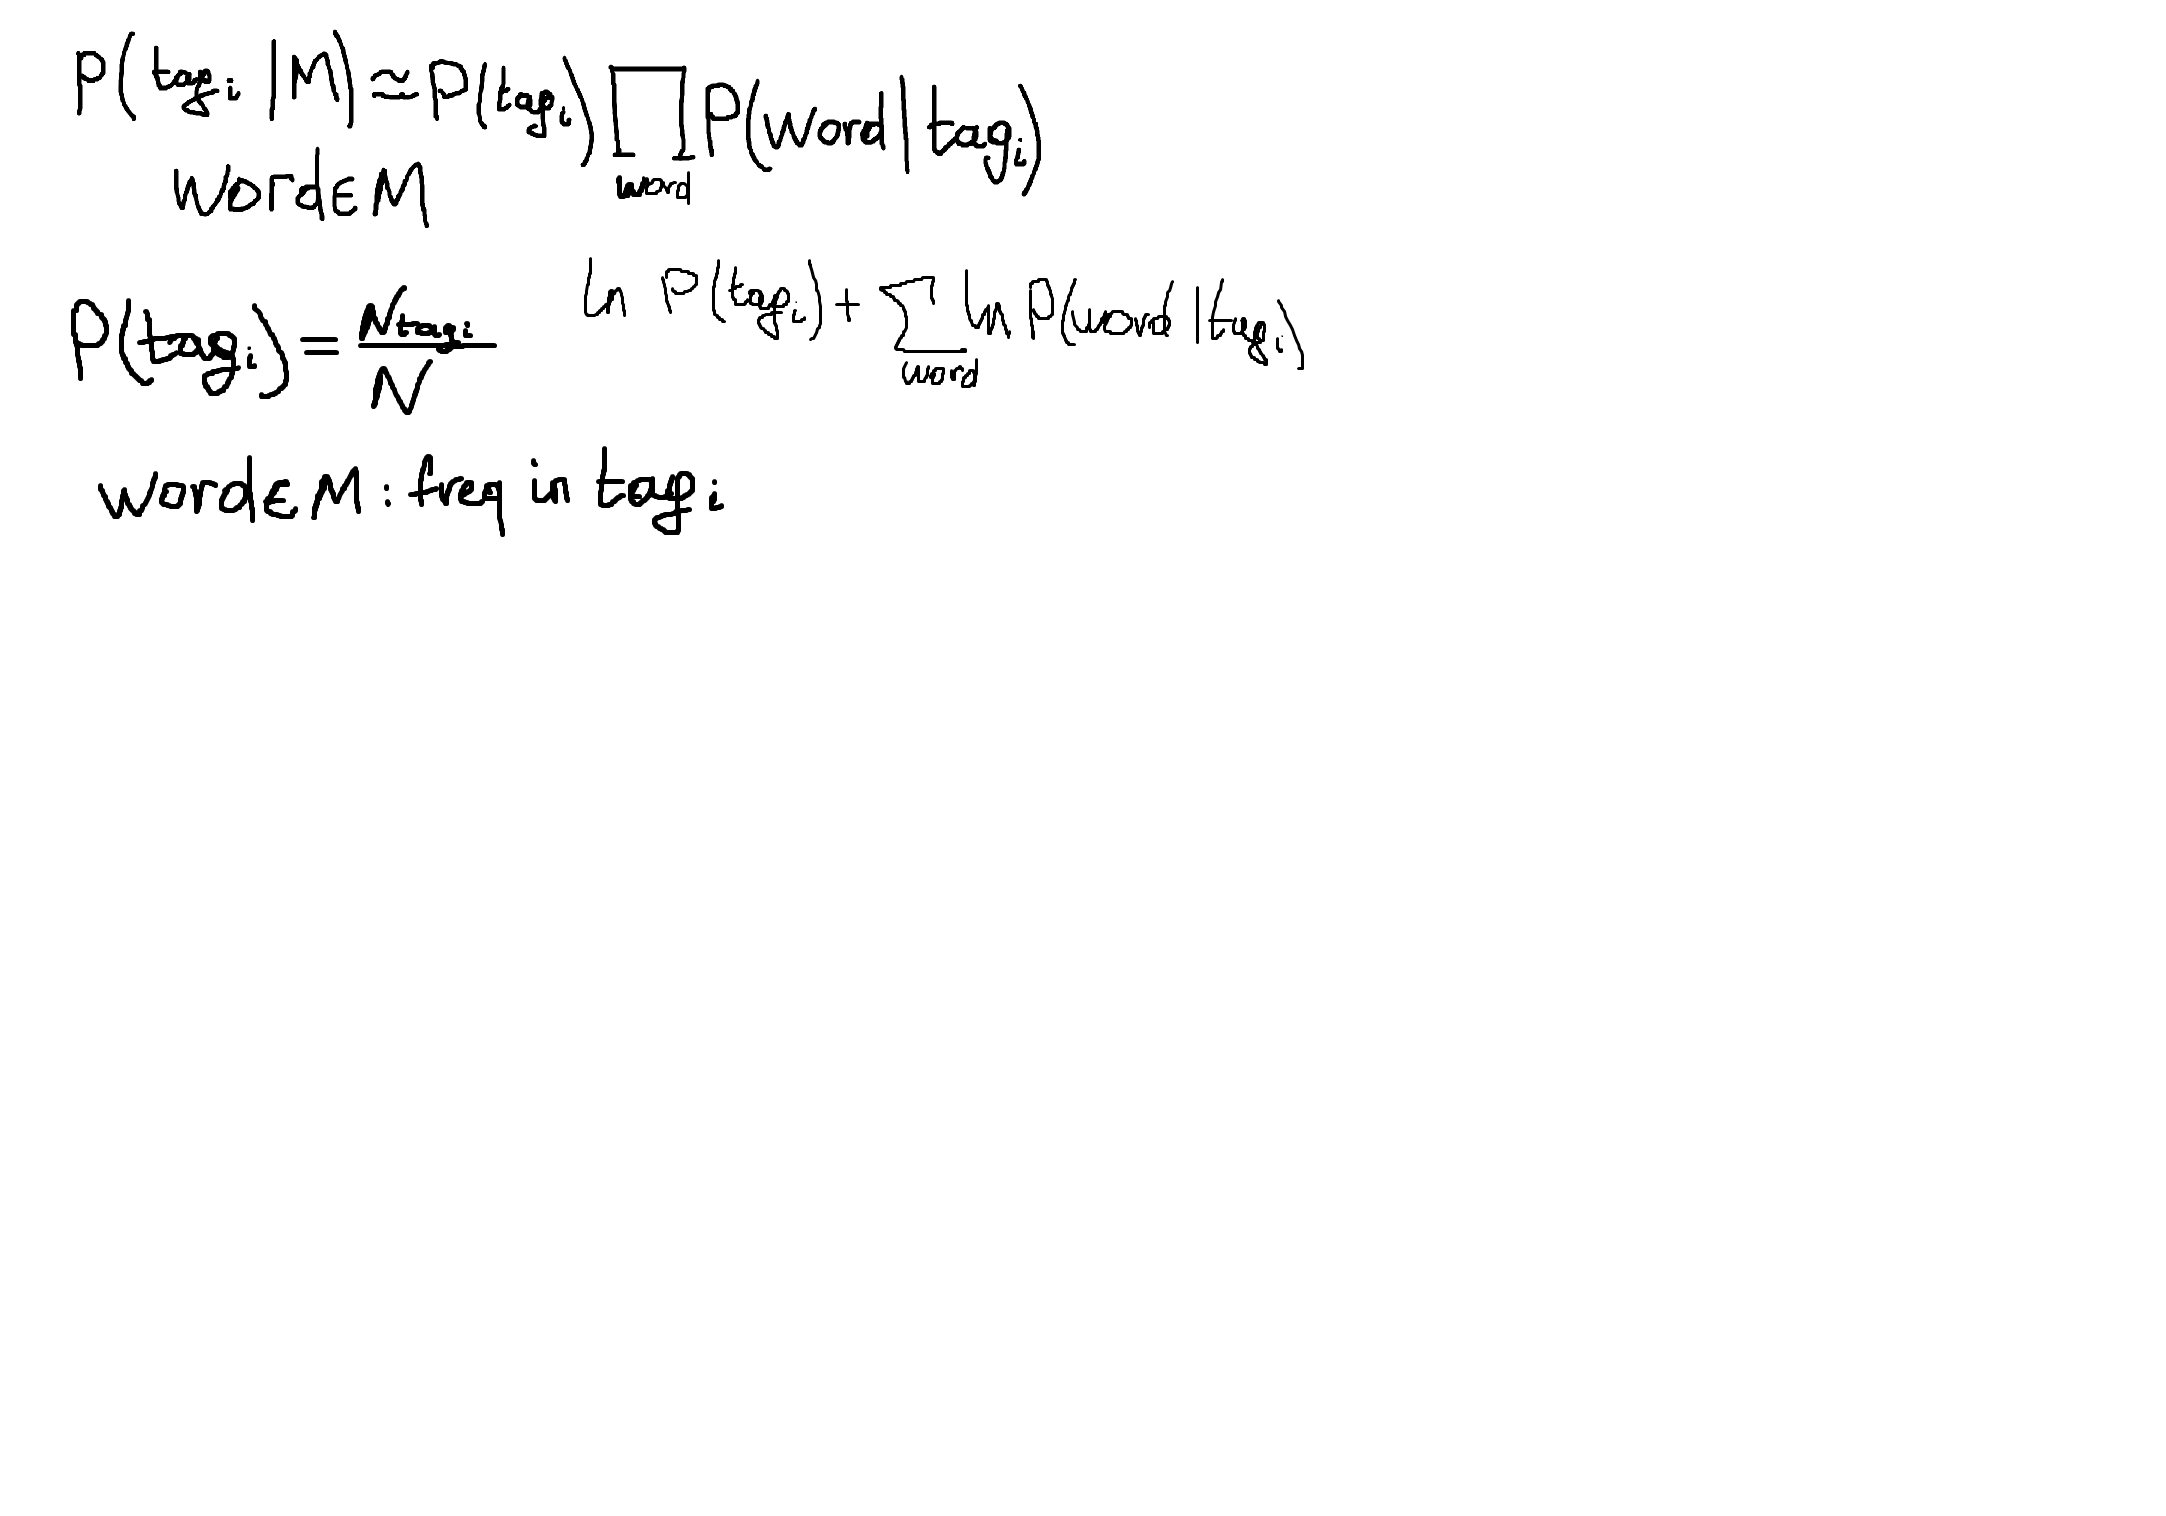 P(tag_i | M) ≃ P(tag_i) ∏_word P(word | tag_i)
word ∈ M
ln P(tag_i) + ∑_word ln P(word | tag_i)
P(tag_i) = N_tag_i / N
word ∈ M : freq in tag_i